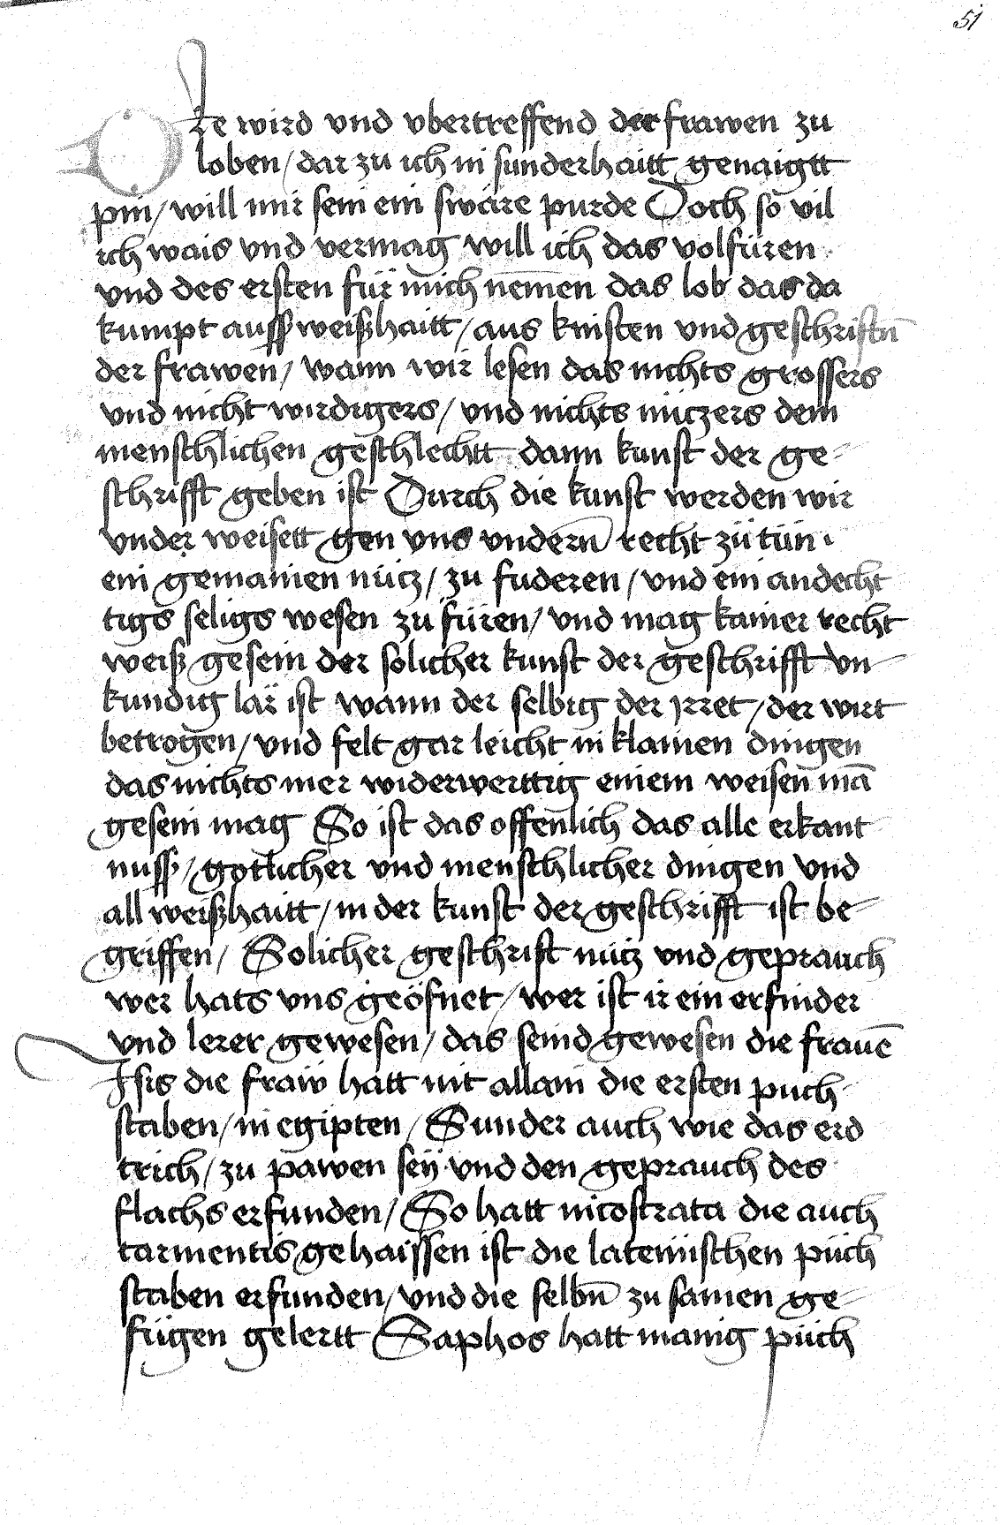 51
Die wird vnd vbertreffend der frawen zu
loben / dar zu ich in sunderhaitt genaigtt
pin / will mir sein ein swäre purde Doch so vil
ich wais vnd vermag will ich das volfüren
vnd des ersten für mich nemen das lob das da
kumpt aussz weißhaitt / aus kinsten vnd geschriftn̄
der frawen / wann wir lesen das nichts grossers
vnd nicht wirdigers / vnd nichts nüczers dem
menschlichen geschlechtt dann kunst der ge-
schrifft geben ist Durch die kunst werden wir
vnder weisett gen vns vndern̄ recht zü tün
ein gemainen nücz / zu fuderen / vnd ein andecht
tigs seligs wesen zu füren / vnd mag kainer recht
weiß gesein der solicher kunst der geschrifft vn-
kundig lär ist wann der selbig der jrret / der wirt
betrogen / vnd felt gar leicht in klainen dingen
das nichts mer widerwerttig einem weisen mā
gesein mag So ist das offenlich das alle erkant
nussz / gotlicher vnd menschlicher dingen vnd
all weißhaitt / in der kunst der geschrifft ist be-
griffen / Solicher geschrift nücz vnd geprauch
wer hats vns geöfnet / wer ist ir ein erfinder
vnd lerer gewesen / das seind gewesen die frauē
Isis die fraw hatt nit allain die ersten puch
staben / in egipten / Sunder auch wie das erd
trich / zu pawen seÿ vnd den geprauch des
flachs erfunden / So hatt nicostrata die auch
carmentis gehaissen ist die lateinischen püch
staben erfunden / vnd die selbn̄ zu samen ge-
fügen gelertt Saphos hatt manig püch